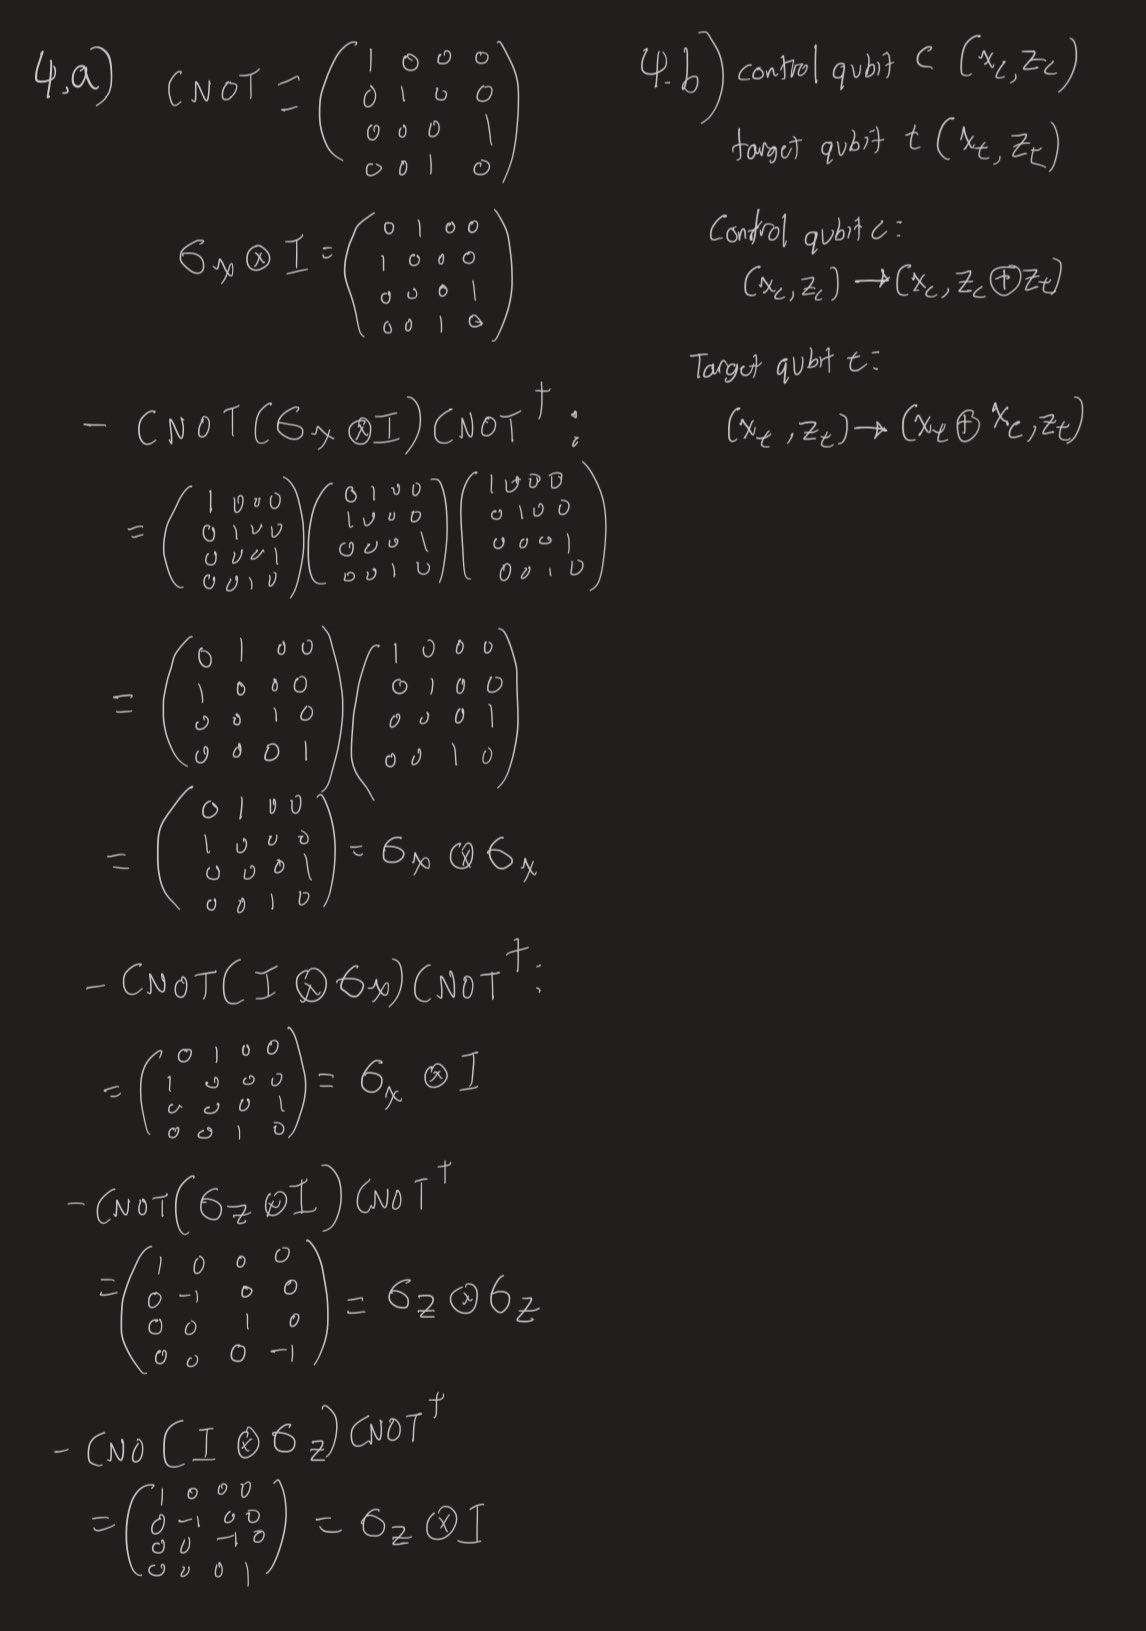 4.a) CNOT = ( 1 0 0 0
0 1 0 0
0 0 0 1
0 0 1 0 )
6x ⊗ I = ( 0 1 0 0
1 0 0 0
0 0 0 1
0 0 1 0 )
- CNOT(6x ⊗ I) CNOT† :
= ( 1 0 0 0 ) ( 0 1 0 0 ) ( 1 0 0 0 )
( 0 1 0 0 ) ( 1 0 0 0 ) ( 0 1 0 0 )
( 0 0 0 1 ) ( 0 0 0 1 ) ( 0 0 0 1 )
( 0 0 1 0 ) ( 0 0 1 0 ) ( 0 0 1 0 )
= ( 0 1 0 0 ) ( 1 0 0 0 )
( 1 0 0 0 ) ( 0 1 0 0 )
( 0 0 1 0 ) ( 0 0 0 1 )
( 0 0 0 1 ) ( 0 0 1 0 )
= ( 0 1 0 0
1 0 0 0
0 0 0 1
0 0 1 0 ) = 6x ⊗ 6x
- CNOT( I ⊗ 6x) CNOT† :
= ( 0 1 0 0
1 0 0 0
0 0 0 1
0 0 1 0 ) = 6x ⊗ I
- CNOT(6z ⊗ I) CNOT†
= ( 1 0 0 0
0 -1 0 0
0 0 1 0
0 0 0 -1 ) = 6z ⊗ 6z
- CNO( I ⊗ 6z) CNOT†
= ( 1 0 0 0
0 -1 0 0
0 0 -1 0
0 0 0 1 ) = 6z ⊗ I
4.b) control qubit c (xc, zc)
target qubit t (xt, zt)
Control qubit c:
(xc, zc) → (xc, zc ⊕ zt)
Target qubit t:
(xt, zt) → (xt ⊕ xc, zt)